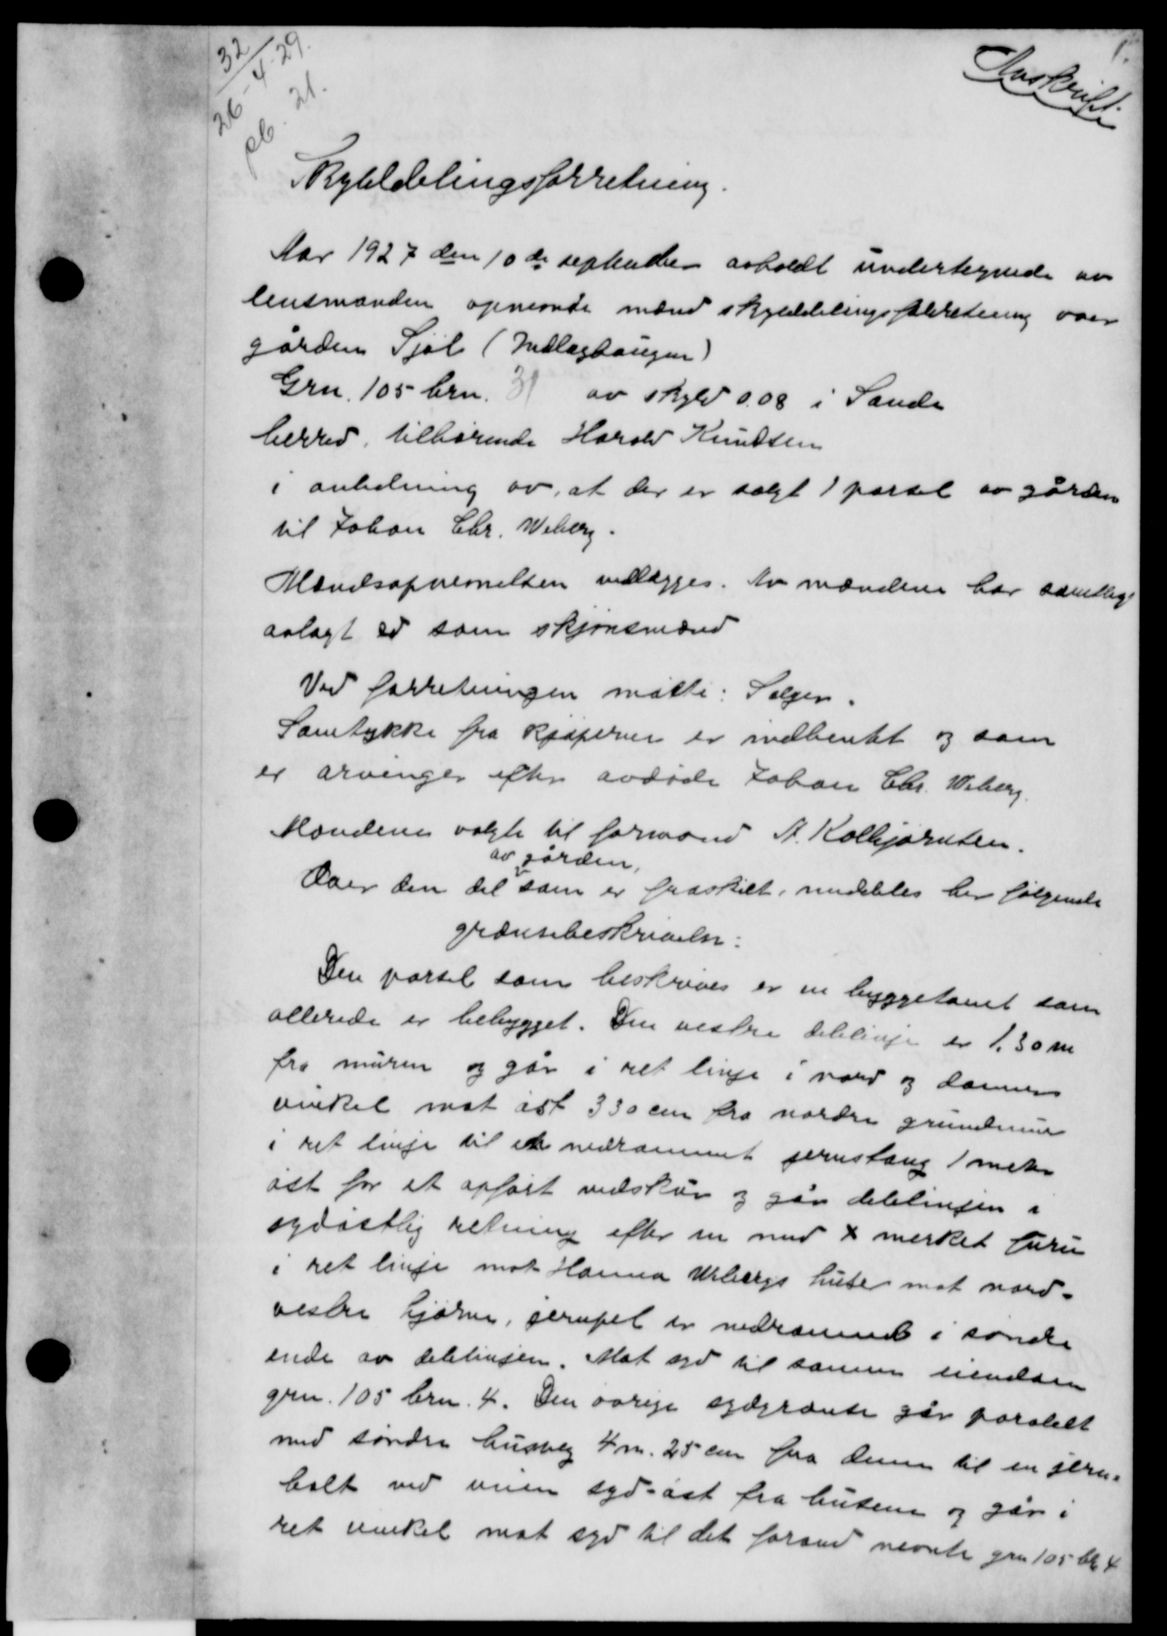 32
26-4-29.
pb. 21.
1.
Avskrift
Skylddelingsforretning.
Aar 1927 den 10de september avholdt undertegnede av
lensmanden opnevnte mænd skylddelingsforretning over
gården Sjøl (Indlaghaugen)
Grn. 105 brn. 31 av skyld 0.08 i Sande
herred, tilhørende Harald Knudsen
i anledning av, at der er solgt 1 parsel av gården
til Johan Chr. Weberg.
Mændsopnevnelsen vedlægges. Av mændene har samtlige
avlagt ed som skjønsmænd
Ved forretningen møtte: Selger.
Samtykke fra kjøperne er indhentet og som
er arvinger efter avdøde Johan Chr. Weberg.
Mændene valgte til formand A. Kolbjørnsen.
av gården,
Over den del som er fraskilt, meddeles her følgende
grænsebeskrivelse:
Den parsel som beskrives er en byggetomt som
allerede er bebygget. Den vestre delelinje er 1.30 m
fra muren og går i ret linje i nord og danner
vinkel mot øst 330 cm fra nordre grundmur
i ret linje til en nedrammet jernstang 1 meter
øst for et opført vedskur og går delelinjen i
sydøstlig retning efter en med x merket furu
i ret linje mot Hanna Webergs huses mot nord-
vestre hjørne, jernpel er nedrammet i søndre
ende av delelinjen. Mot syd til samme eiendom
grn. 105 brn. 4. Den øvrige sydgrænse går paralelt
med søndre husveg 4 m. 25 cm fra denne til en jern-
bolt ved veien syd-øst fra husene og går i
ret vinkel mot syd til det forand nevnte grn 105 br 4